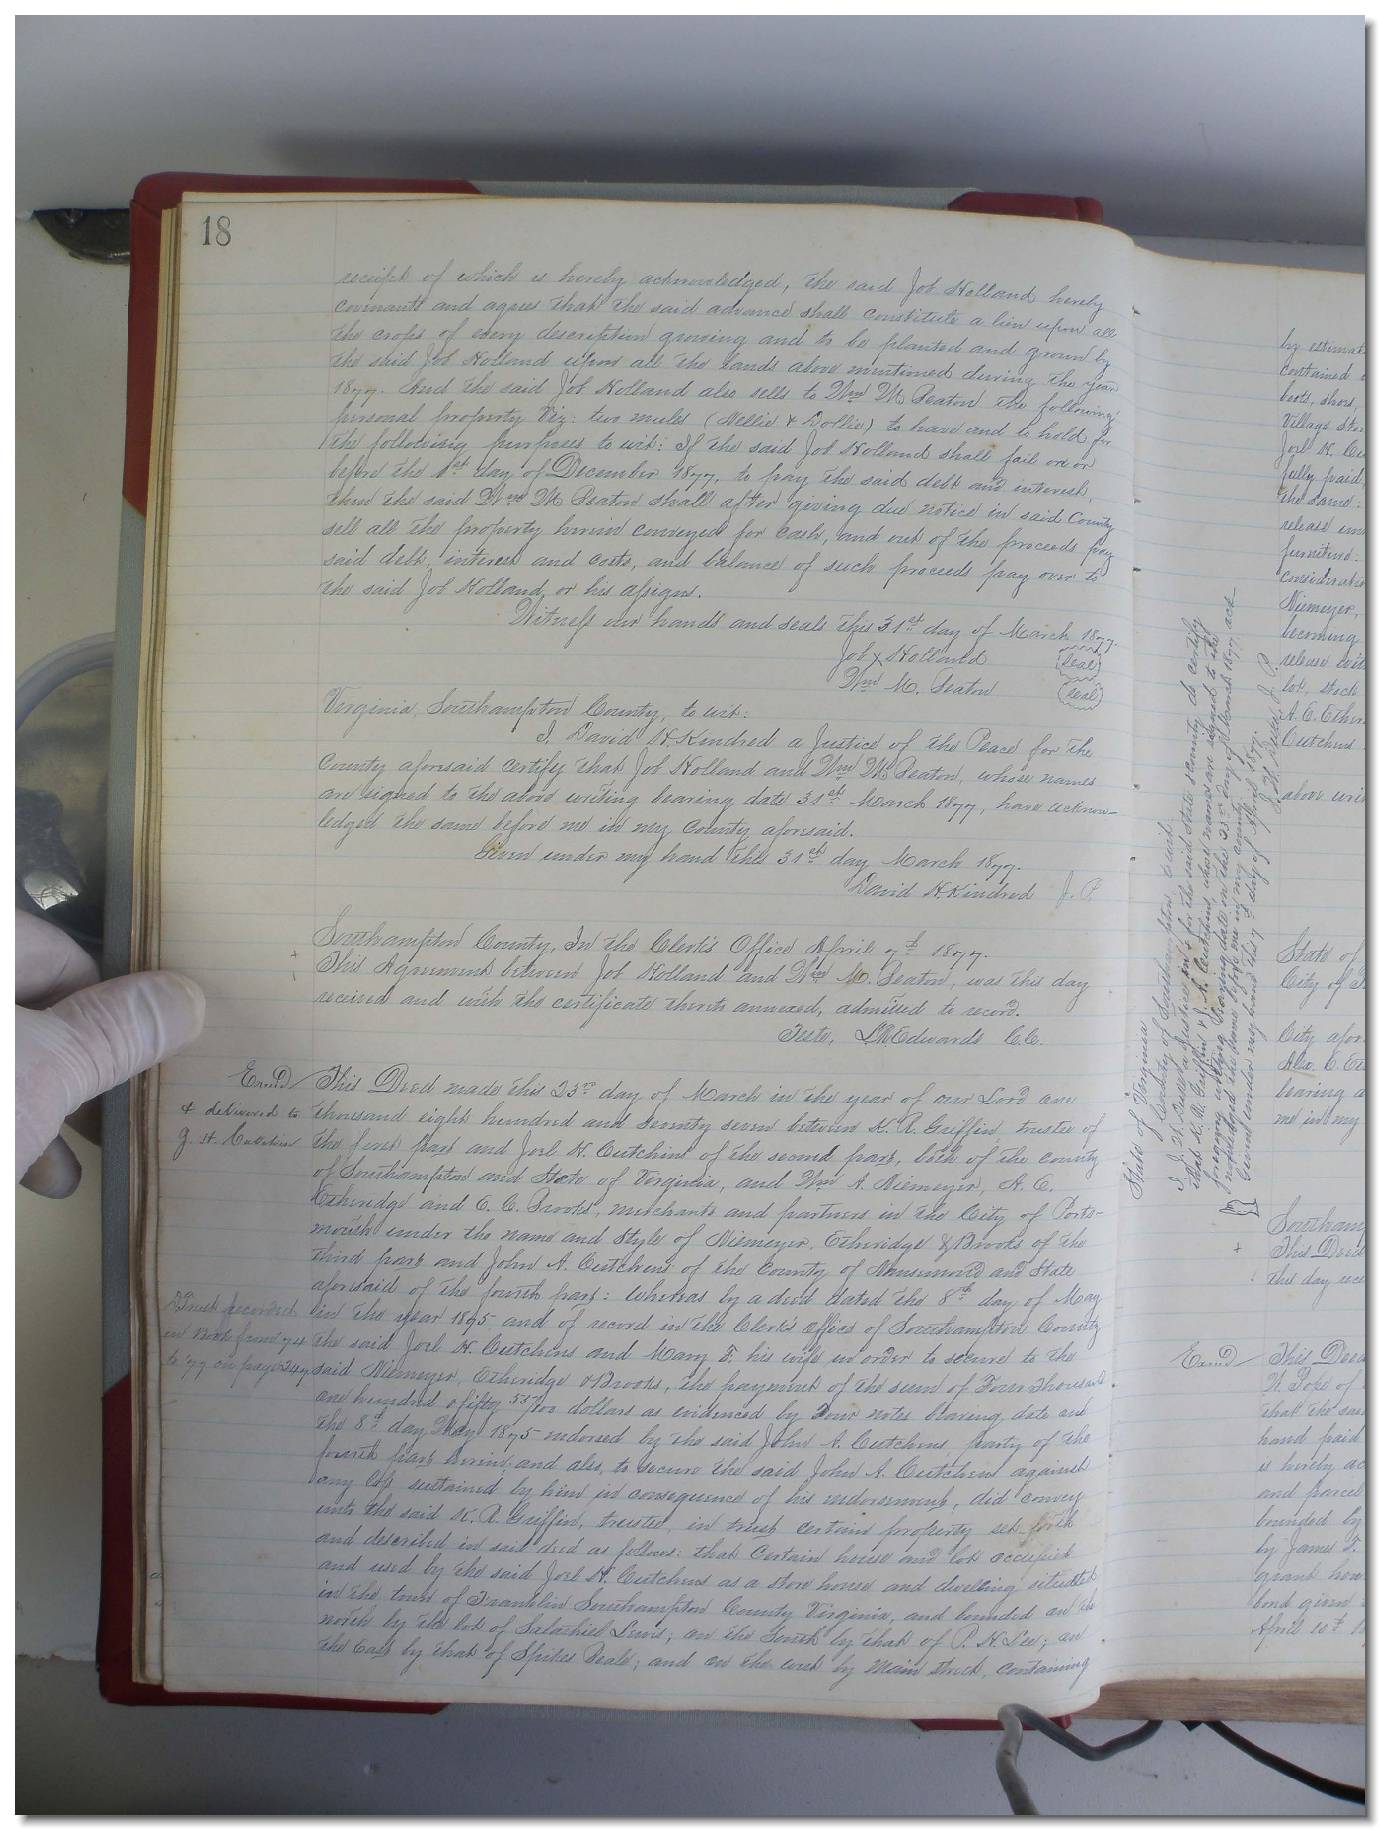 18
receipt of which is hereby acknowledged, the said Job Holland hereby
covenants and agrees that the said advance shall constitute a lien upon all
the crops of every description growing and to be planted and grown by
the said Job Holland upon all the lands above mentioned during the year
1877. And the said Job Holland also sells to Wm M. Beaton the following
personal property Viz: two mules (Nellie & Dollie) to have and to hold for
the following purposes to wit: If the said Job Holland shall fail on or
before the 1st day of December 1877, to pay the said debt and interest,
then the said Wm M. Beaton shall after giving due notice in said County
sell all the property herein conveyed for cash, and out of the proceeds pay
said debt, interest and costs, and balance of such proceeds pay over to
the said Job Holland, or his assigns.
Witness our hands and seals this 31st day of March 1877.
Job X Holland (Seal)
Wm M. Beaton (Seal)
Virginia, Southampton County, to wit:
I, David H. Kindred a Justice of the Peace for the
County aforesaid certify that Job Holland and Wm M. Beaton, whose names
are signed to the above writing bearing date 31st March 1877, have acknow-
ledged the same before me in my County aforesaid.
Given under my hand this 31st day March 1877.
David H. Kindred J. P.
Southampton County, In the Clerk's Office April 7th 1877.
This Agreement between Job Holland and Wm M. Beaton, was this day
received and with the certificate thereto annexed, admitted to record.
Teste, L R Edwards C.C.
Exmd
& delivered to
J. H. Cutchin
This Deed made this 23rd day of March in the year of our Lord one
thousand eight hundred and seventy seven between K. R. Griffin, trustee of
the first part and Joel H. Cutchins of the second part, both of the county
of Southampton and State of Virginia, and Wm A. Niemeyer, A. E.
Etheridge and E. C. Brooks, merchants and partners in the City of Ports-
mouth under the name and Style of Niemeyer, Etheridge & Brooks of the
third part and John A. Cutchins of the County of Nansemond and State
aforesaid of the fourth part: Whereas by a deed dated the 8th day of May
in the year 1875 and of record in the Clerk's office of Southampton County
the said Joel H. Cutchens and Mary F. his wife in order to secure to the
said Niemeyer, Etheridge & Brooks, the payment of the sum of Four Thousand
one hundred & fifty 55/100 dollars as evidenced by Four notes bearing date on
the 8th day May 1875 endorsed by the said John A. Cutchens, party of the
fourth part herein; and also, to secure the said John A. Cutchens against
any loss sustained by him in consequence of his endorsement, did convey
unto the said K. R. Griffin, trustee, in trust certain property set forth
and described in said deed as follows: that Certain house and lot occupied
and used by the said Joel H. Cutchens as a store house and dwelling situated
in the town of Franklin Southampton County Virginia, and bounded on the
north by the lot of Salathiel Lewis; on the South by that of P. H. Lee; on
the East by that of Spikes Beale; and on the west by Main street, containing
Trust recorded
in Book from 74
to '77 on page 247
State of Virginia
County of Southampton to wit
I, J. H. a Justice in & for the said state & county do certify
that K. R. Griffin & J. H. Cutchins, whose names are signed to the
foregoing writing bearing date on the 23rd day of March 1877 ack
nowledged the same before me in my county.
Given under my hand this 7 day of April 1877.
J. P.
by estimat
contained
boots, shoes,
Village Stor
Joel H. Cu
fully paid
the same
release
furniture
consideratio
Niemeyer,
becoming
release
lot, stock
A. E. Ether
Cutchens
above wri
State of
City of
City afor
Alex. E. Et
bearing
me in my
Southam
This Deed
this day rec
Exmd
This Deed
W. Pope of
that the sai
hand paid
is hereby ac
and parcel
bounded by
by James T.
grant
bond given
April 10th